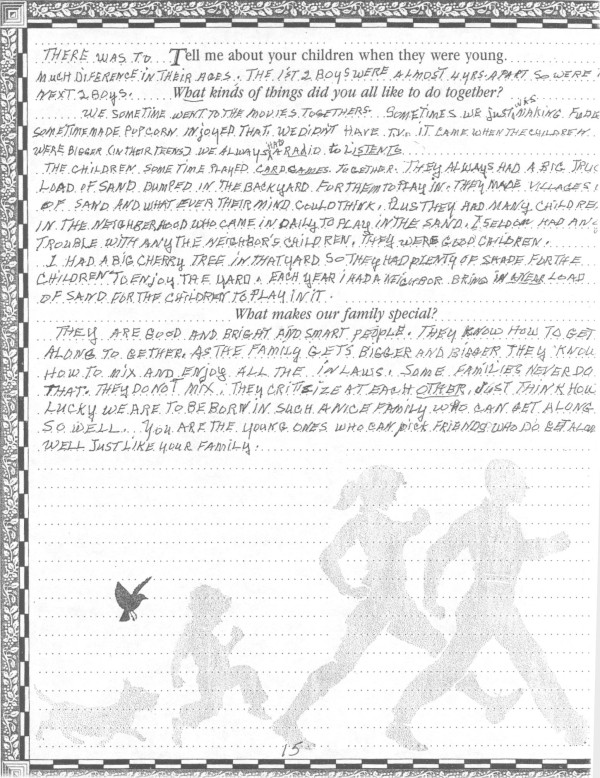 Tell me about your children when they were young.
THERE WAS TO
MUCH DIFERENCE IN THEIR AGES. THE 1ST 2 BOYS WERE ALMOST 4 YRS. APART SO WERE
NEXT 2 BOYS.
What kinds of things did you all like to do together?
WE SOMETIME WENT TO THE MOVIES TOGETHERS. SOMETIMES WE JUST MAKING FUDGE
SOMETIME MADE POPCORN INJOYED THAT. WE DIDN'T HAVE T.V. IT CAME WHEN THE CHILDREN
WERE BIGGER (IN THEIR TEENS) WE ALWAYS HAD A RADIO to LISTEN TO
THE CHILDREN SOME TIME PLAYED CARD GAMES TOGETHER. THEY ALWAYS HAD A BIG TRUCK
LOAD OF SAND DUMPED IN THE BACKYARD FOR THEM TO PLAY IN. THEY MADE VILLAGES
OF SAND AND WHAT EVER THEIR MIND COULD THINK. PLUS THEY HAD MANY CHILDREN
IN THE NEIGHBERHOOD WHO CAME IN DAILY TO PLAY IN THE SAND. I SELDOM HAD ANY
TROUBLE WITH ANY THE NEIGHBOR'S CHILDREN. THEY WERE GOOD CHILDREN.
I HAD A BIG CHERRY TREE IN THAT YARD SO THEY HAD PLENTY OF SHADE FOR THE
CHILDREN TO ENJOY THE YARD. EACH YEAR I HAD A NEIGHBOR BRING IN A NEW LOAD
OF SAND FOR THE CHILDREN TO PLAY IN IT.
What makes our family special?
THEY ARE GOOD AND BRIGHT AND SMART PEOPLE. THEY KNOW HOW TO GET
ALONG TO GETHER. AS THE FAMILY GETS BIGGER AND BIGGER THEY KNOW
HOW TO MIX AND ENJOY ALL THE INLAWS. SOME FAMILIES NEVER DO
THAT. THEY DO NOT MIX. THEY CRITISIZE AT EACH OTHER. JUST THINK HOW
LUCKY WE ARE TO BE BORN IN SUCH A NICE FAMILY WHO CAN GET ALONG
SO WELL. YOU ARE THE YOUNG ONES WHO CAN PICK FRIENDS WHO DO GET ALONG
WELL JUST LIKE YOUR FAMILY.
15